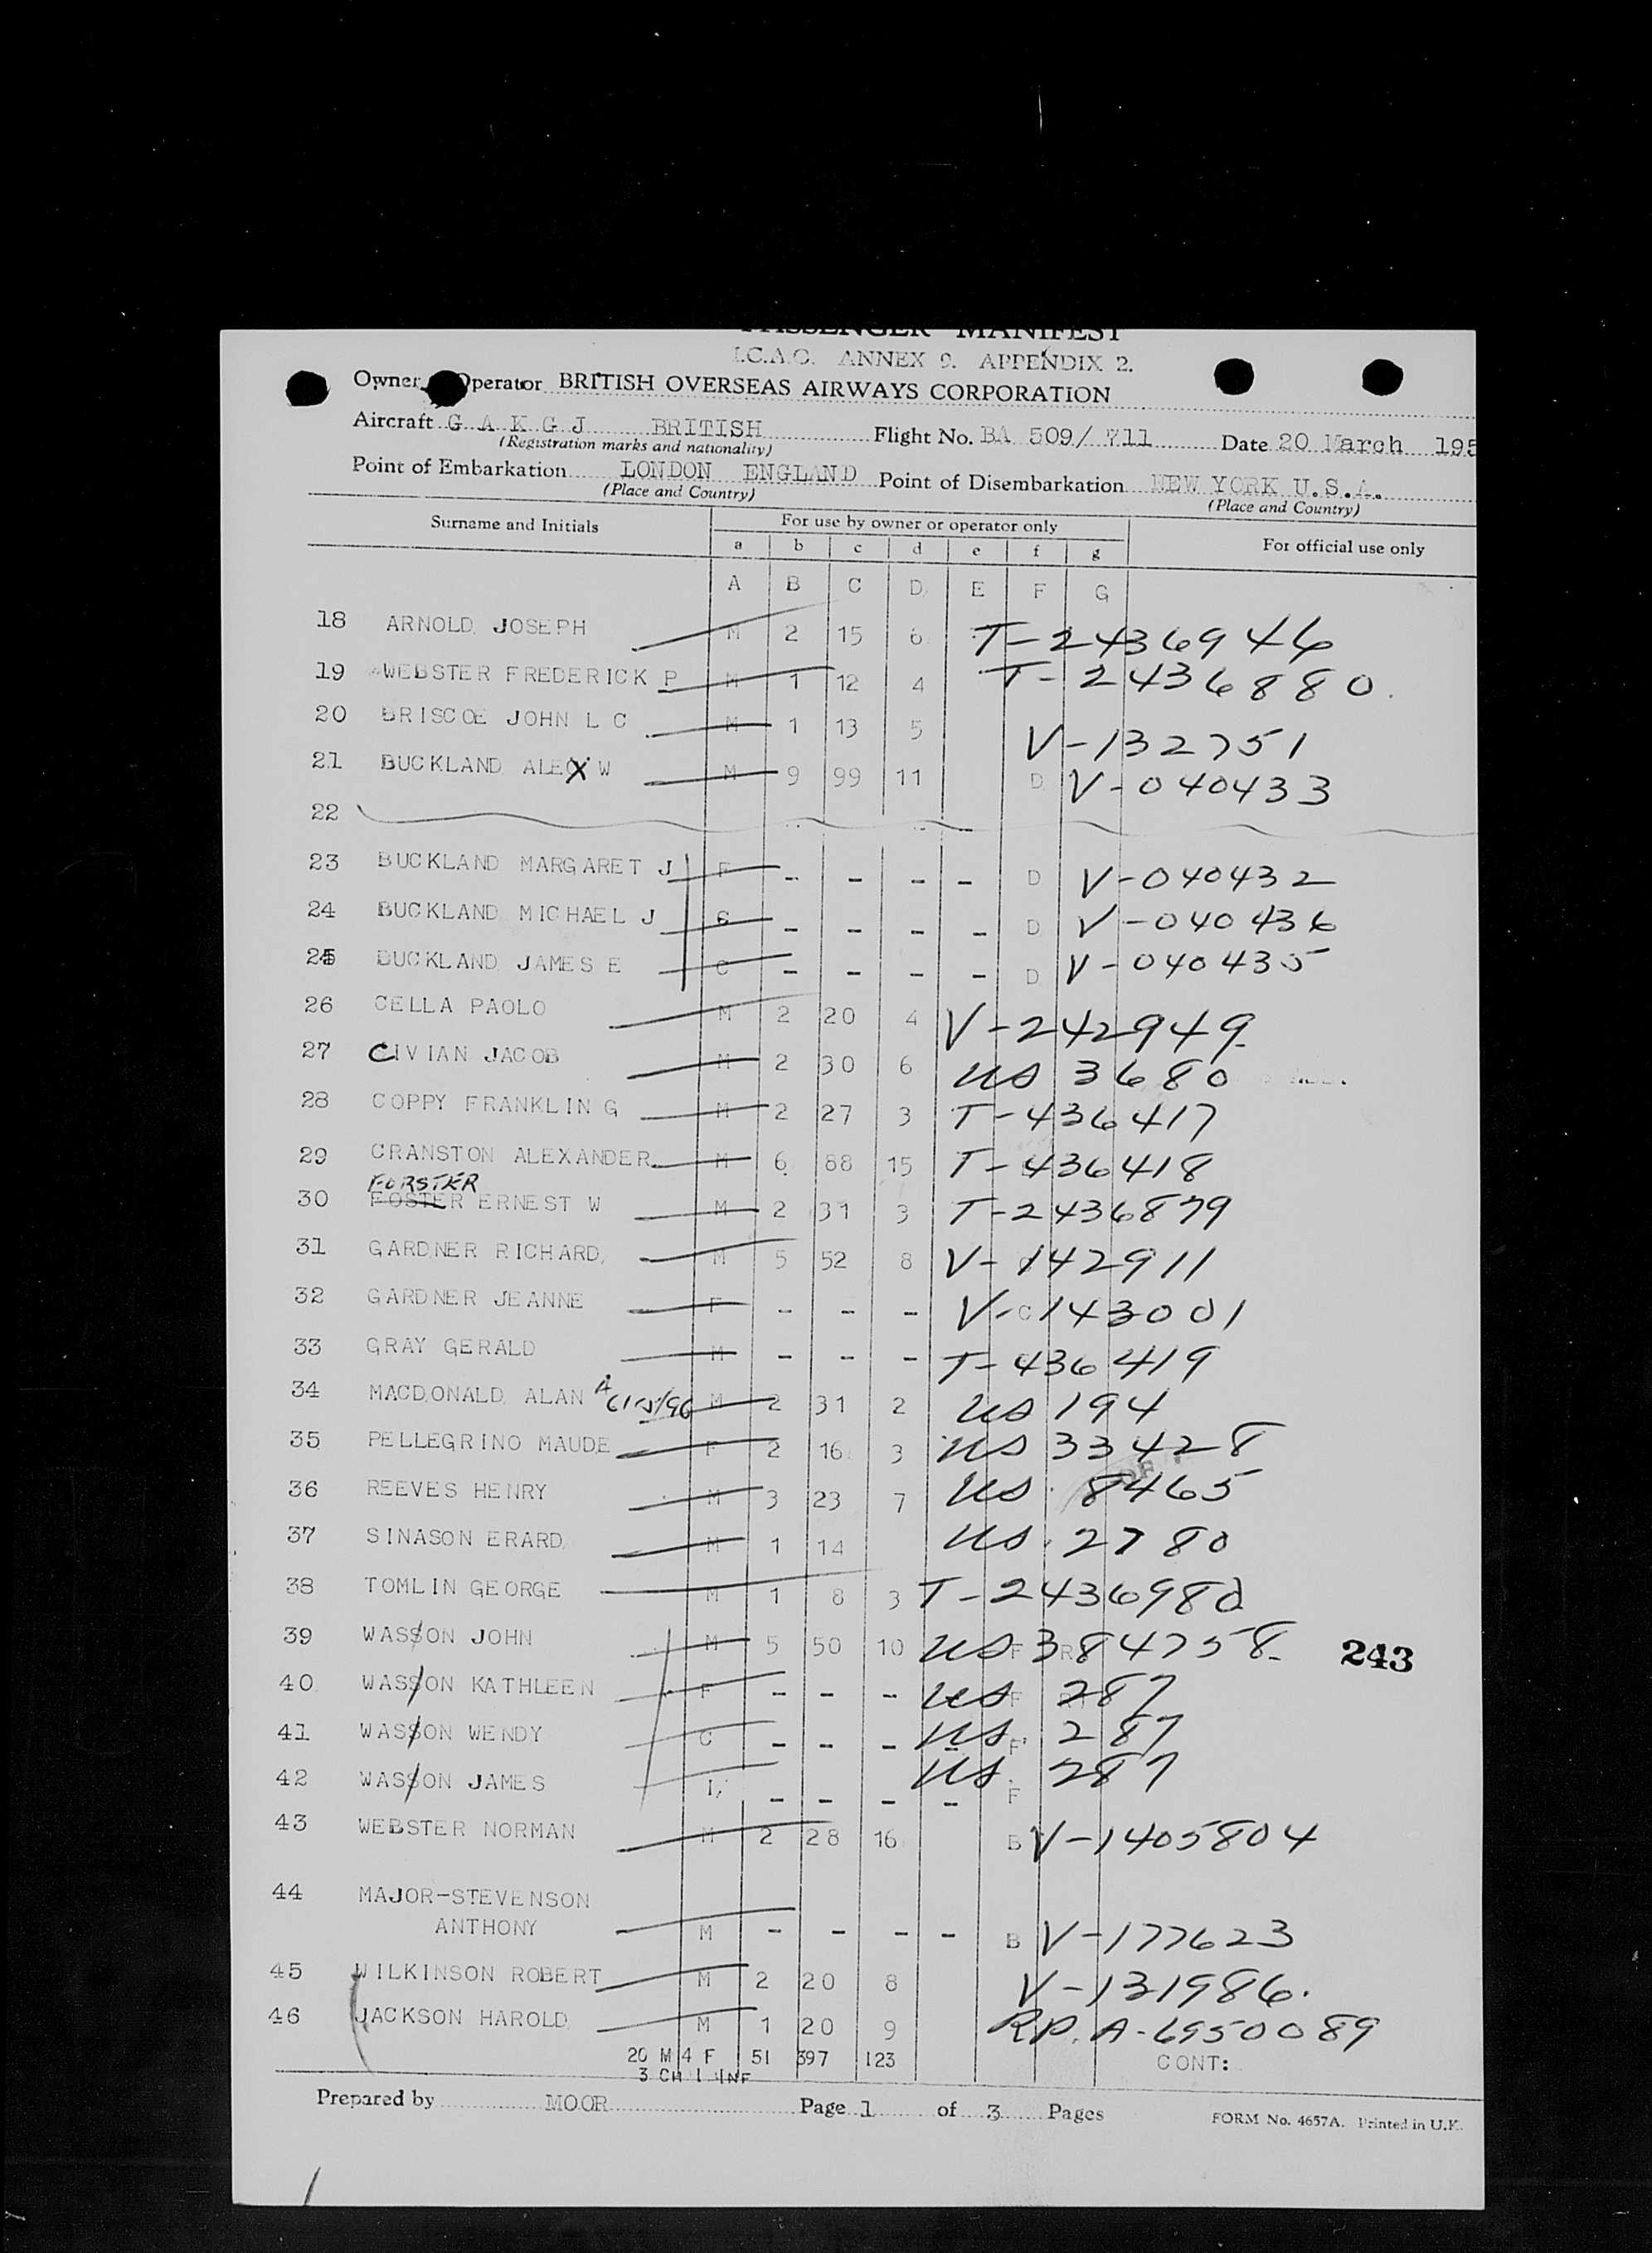 PASSENGER MANIFEST
I.C.A.O. ANNEX 9. APPENDIX 2.
Owner Operator BRITISH OVERSEAS AIRWAYS CORPORATION
Aircraft G A K G J BRITISH Flight No. BA 509/ 711 Date 20 March 195
(Registration marks and nationality)
Point of Embarkation LONDON ENGLAND Point of Disembarkation NEW YORK U.S.A.
(Place and Country) (Place and Country)
Surname and Initials For use by owner or operator only For official use only
a b c d e f g
A B C D E F G
18 ARNOLD JOSEPH M 2 15 6 T-2436946
19 WEBSTER FREDERICK P M 1 12 4 T-2436880.
20 BRISCOE JOHN L C M 1 13 5 V-132751
21 BUCKLAND ALEX W M 9 99 11 D V-040433
22
23 BUCKLAND MARGARET J F - - - - D V-040432
24 BUCKLAND MICHAEL J C - - - - D V-040436
25 BUCKLAND JAMES E C - - - - D V-040435
26 CELLA PAOLO M 2 20 4 V-242949
27 CIVIAN JACOB M 2 30 6 US 3680
28 COPPY FRANKLIN G M 2 27 3 T-436417
29 CRANSTON ALEXANDER M 6 88 15 T-436418
FORSTER
30 FOSTER ERNEST W M 2 31 3 T-2436879
31 GARDNER RICHARD M 5 52 8 V-142911
32 GARDNER JEANNE F - - - C V-143001
33 GRAY GERALD M - - - T-436419
34 MACDONALD ALAN A M 2 31 2 US 194
35 PELLEGRINO MAUDE F 2 16 3 US 33428
36 REEVES HENRY M 3 23 7 US 8465
37 SINASON ERARD M 1 14 US 2780
38 TOMLIN GEORGE M 1 8 3 T-2436980
39 WASSON JOHN M 5 50 10 F R US 384758 243
40 WASSON KATHLEEN F - - - F US 287
41 WASSON WENDY C - - - - F US 287
42 WASSON JAMES I - - - - F US 287
43 WEBSTER NORMAN M 2 28 16 B V-1405804
44 MAJOR-STEVENSON
ANTHONY M - - - - B V-177623
45 WILKINSON ROBERT M 2 20 8 V-131986.
46 JACKSON HAROLD M 1 20 9 R.P. A-6950089
20 M 4 F 51 397 123 CONT:
3 CH 1 INF
Prepared by MOOR Page 1 of 3 Pages FORM No. 4657A. Printed in U.K.